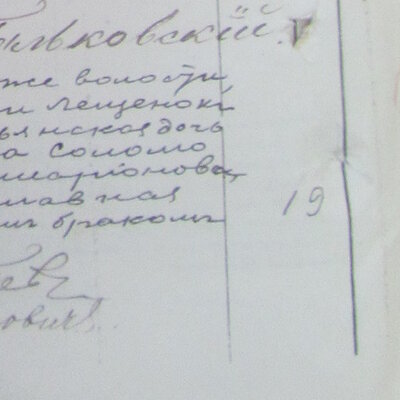 же волости
и Лещенокъ
янская дочь
а Соломо
иларіонова,
лавная
мъ бракомъ
19
евъ
овичъ.